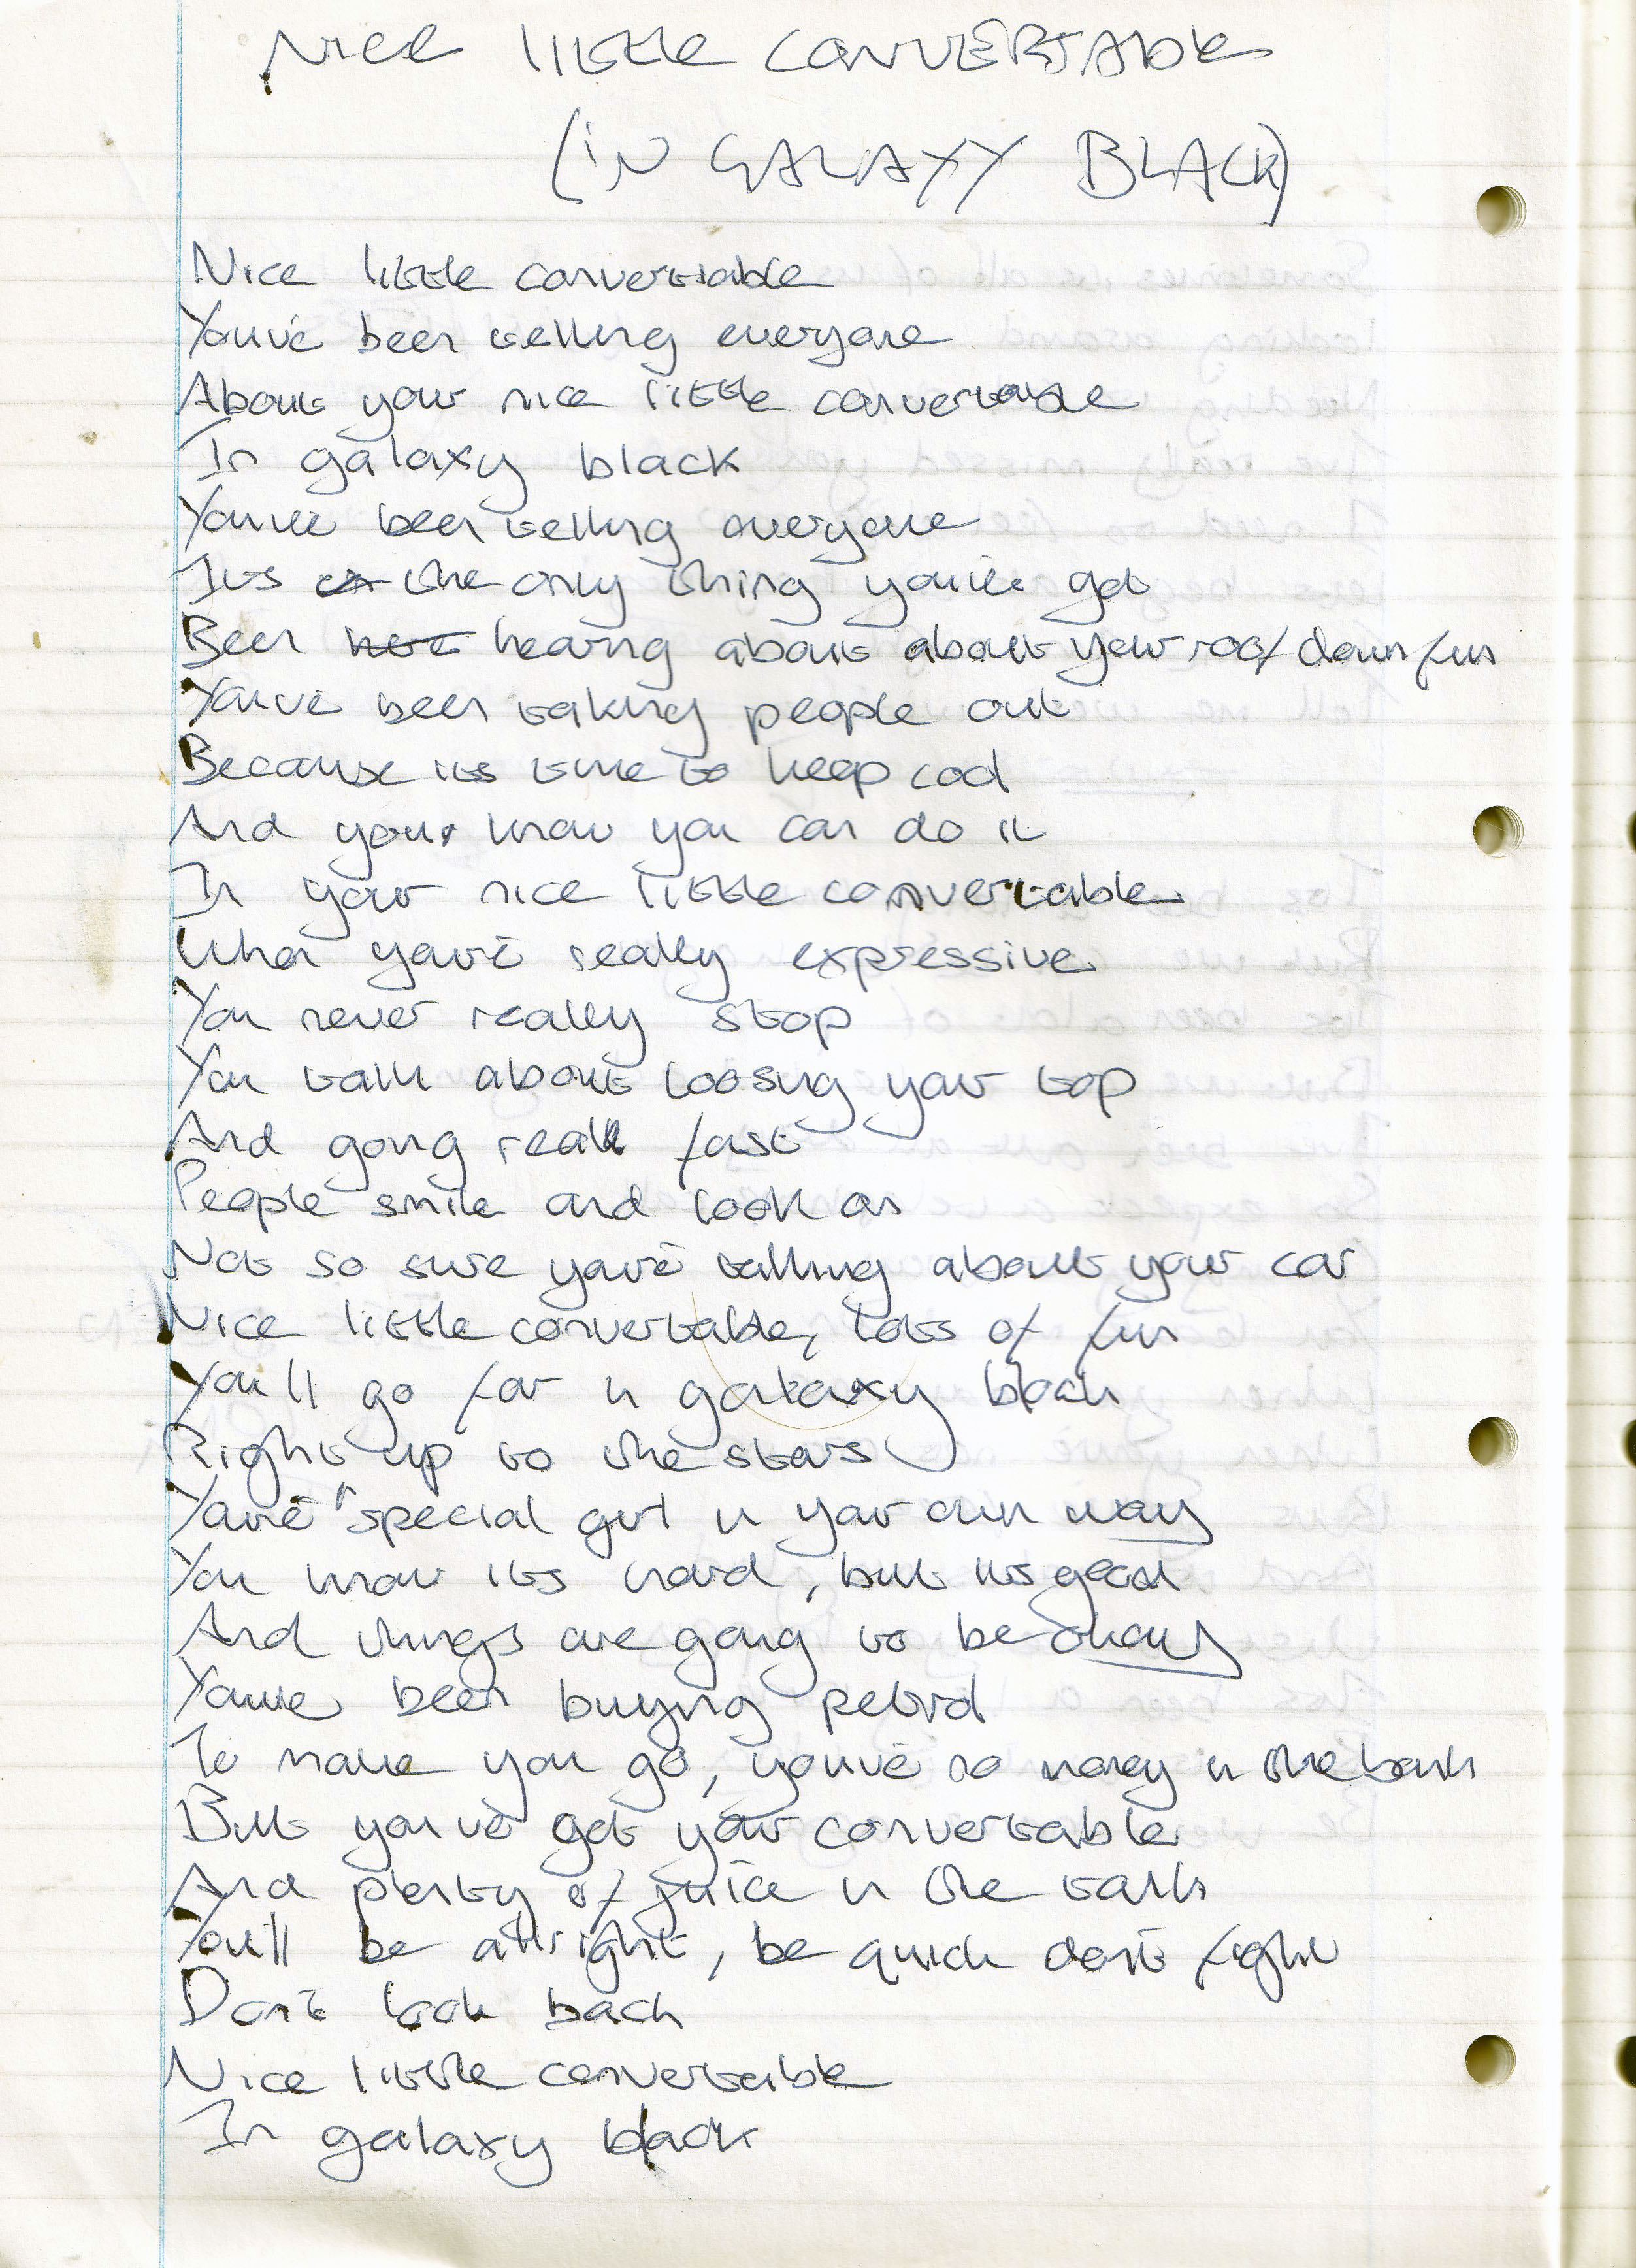 NICE LITTLE CONVERTABLE
(IN GALAXY BLACK)
Nice little convertable
You've been telling everyone
About your nice little convertable
In galaxy black
You've been telling everyone
Its the only thing you've got
Been hearing about about your roof down fun
You've been taking people out
Because its time to keep cool
And your know you can do it
In your nice little convertable
When you're really expressive
You never really stop
You talk about loosing your top
And going real fast
People smile and look on
Not so sure you're talking about your car
Nice little convertable, lots of fun
You'll go far in galaxy black
Right up to the stars
You're special girl in your own way
You know its hard, but its good
And things are going to be okay
You've been buying petrol
To make you go, you've no money in the bank
But you've got your convertable
And plenty of juice in the tank
You'll be allright, be quick don't fight
Don't look back
Nice little convertable
In galaxy black